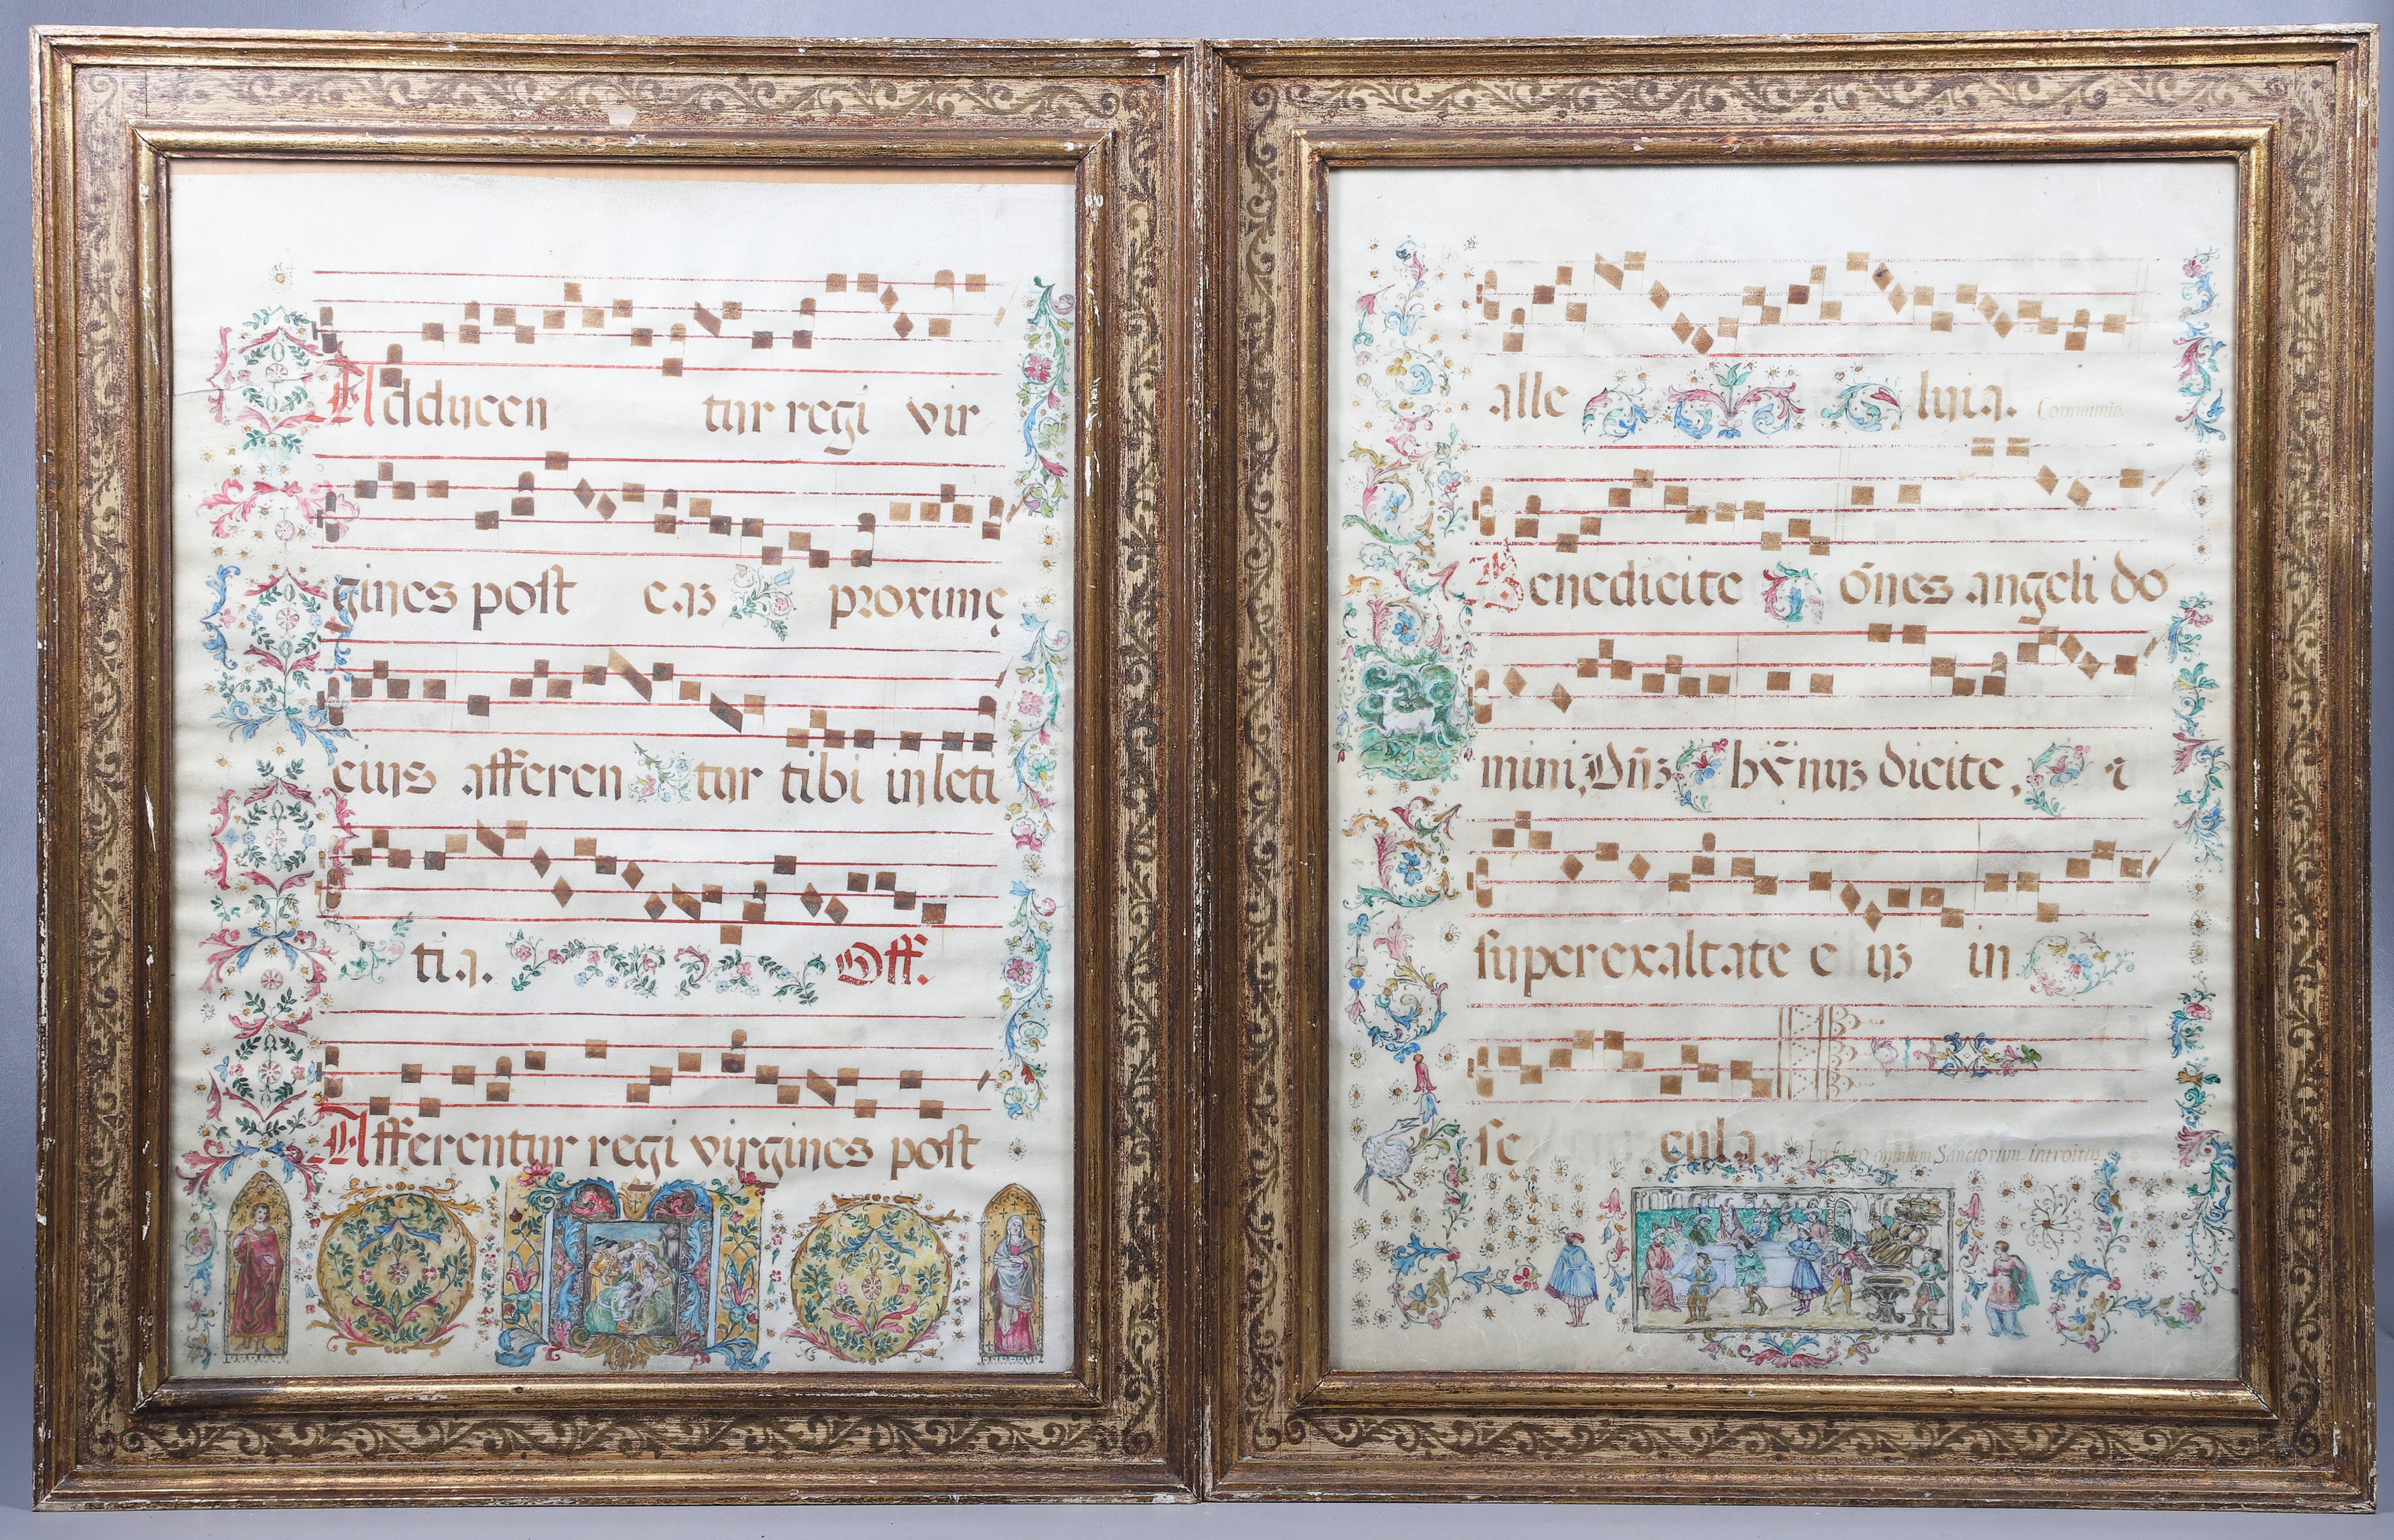 Adducen tur regi vir
gines post eaʒ proximę
eius afferen tur tibi in leti
tia. Off.
Afferentur regi virgines post
alle luia. Communio.
Benedicite ōnes angeli do
mini, Dn̄ʒ hȳmnʒ dicite, et
superexaltate e uʒ in
se cula. In festo omnium Sanctorum introitus